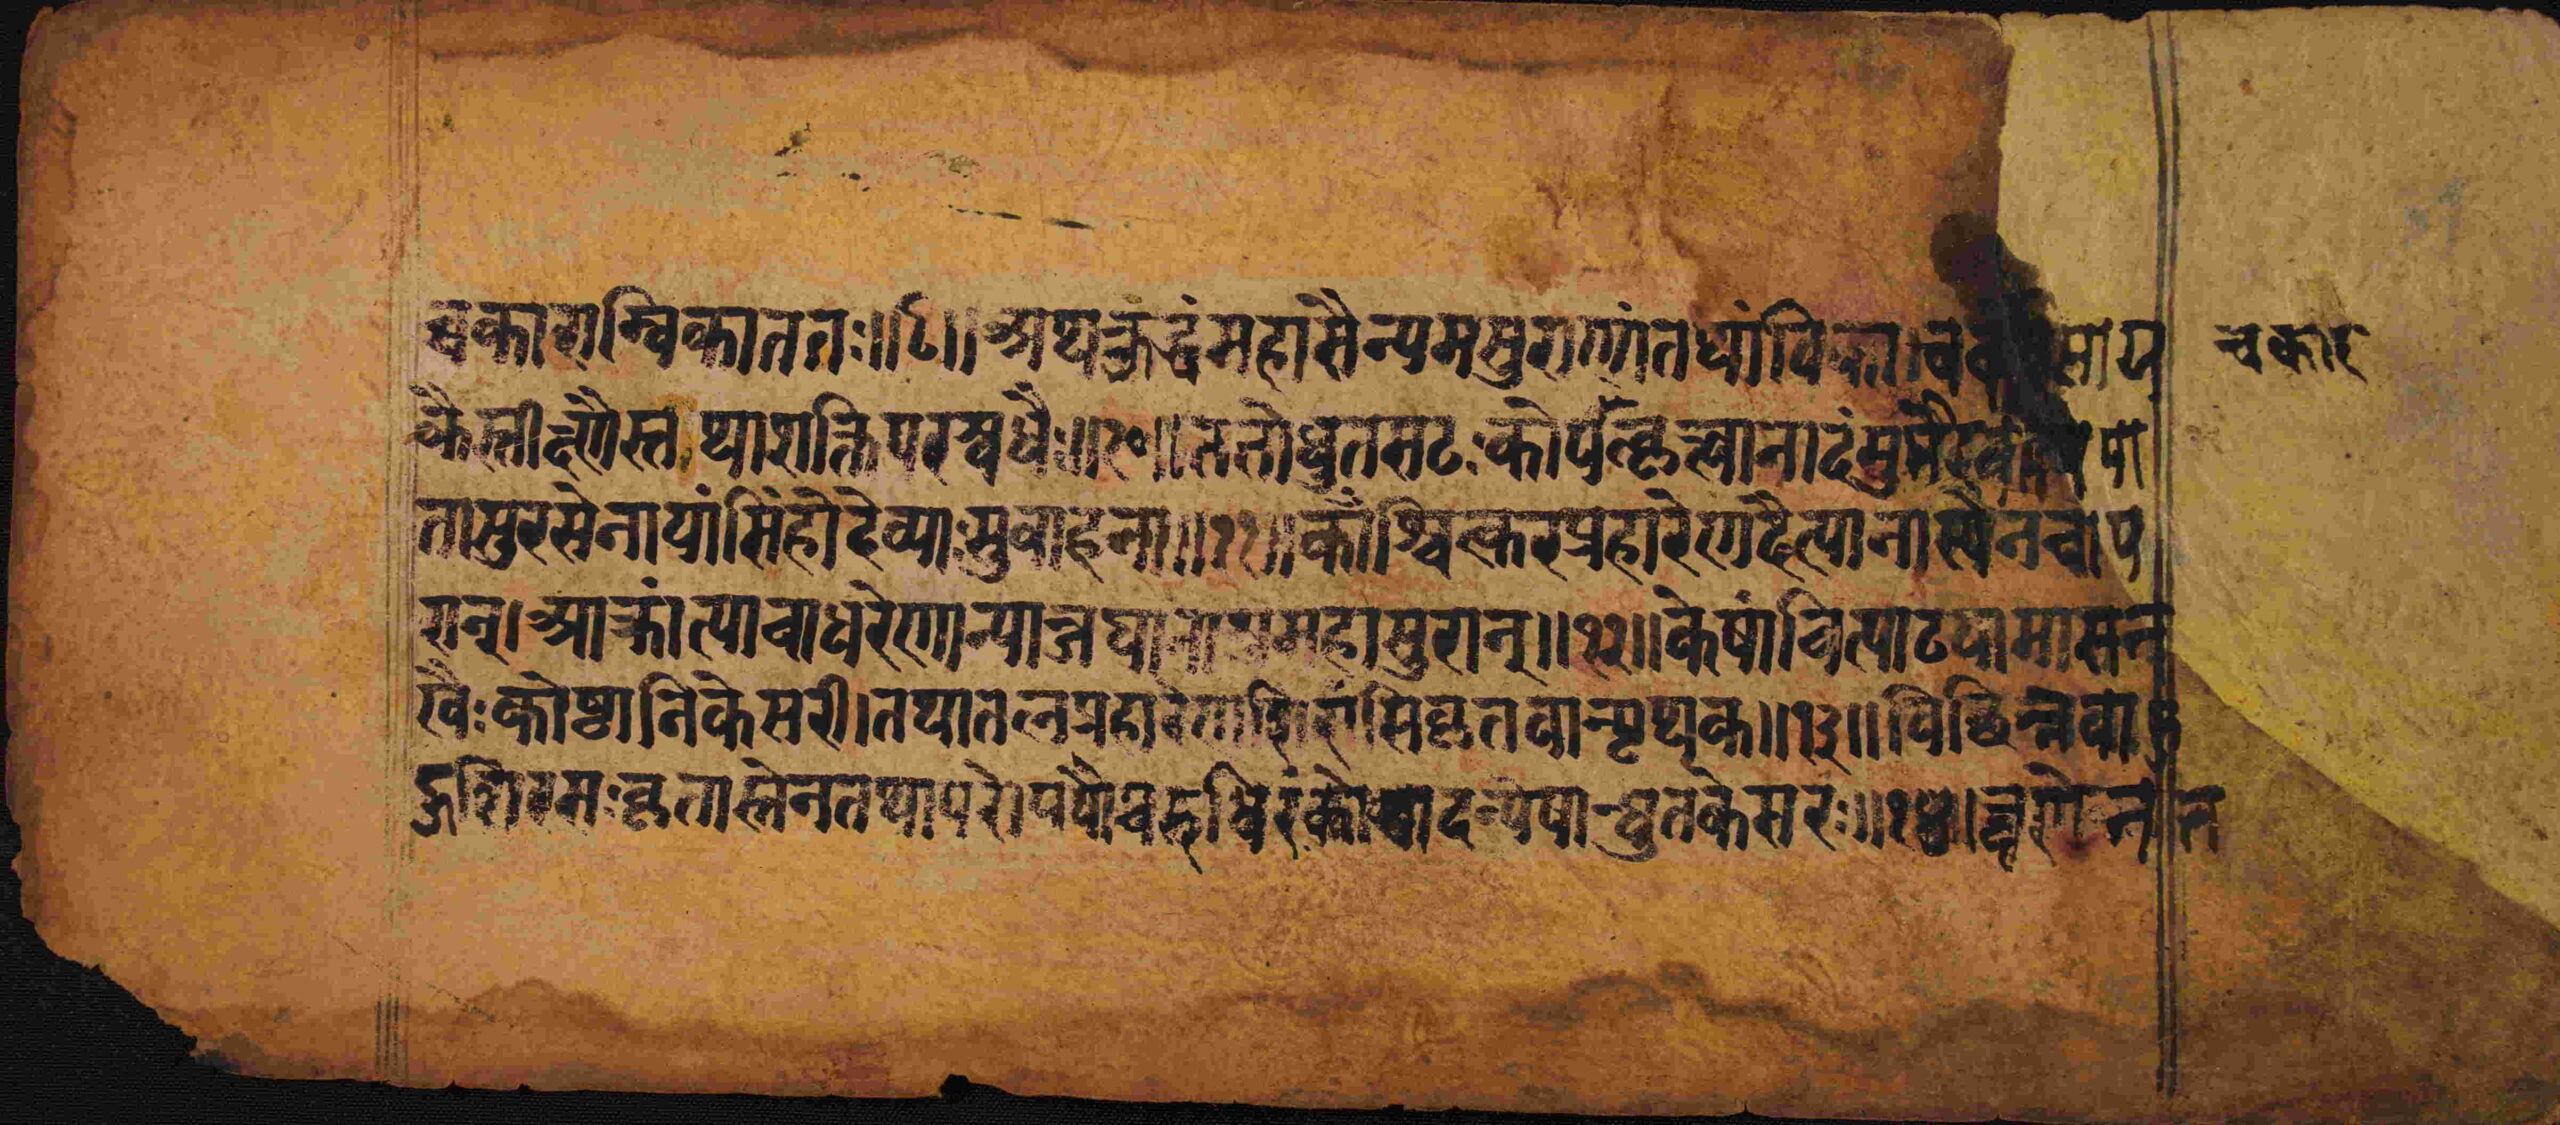 चकाराम्बिकाततः॥९॥अथक्रुद्धंमहासैन्यमसुराणांतथांविका।ववर्षसाय चकार
कैस्तीक्ष्णैस्तथाशक्तिपरस्वधैः॥१०॥ततोधुतसटःकोपात्कृत्वानादंसुभैरवंपपा
तासुरसेनायांसिंहोदेव्याःसुवाहनः॥११॥कांश्चित्करप्रहारेणदैत्यानास्येनचाप
रान्।आक्रांत्याचाधरेणान्याञ्जघानासुमहासुरान्॥१२॥केषांचित्पाटयामासन
खैःकोष्ठानिकेसरी।तथातलप्रहारेणशिरांसिकृतवान्पृथक्॥१३॥विच्छिन्नवाहु
शिरसःकृतास्तेनतथापरे।पपौचरुधिरंकोष्ठादन्येषान्धुतकेसरः॥१४॥क्षणेनत